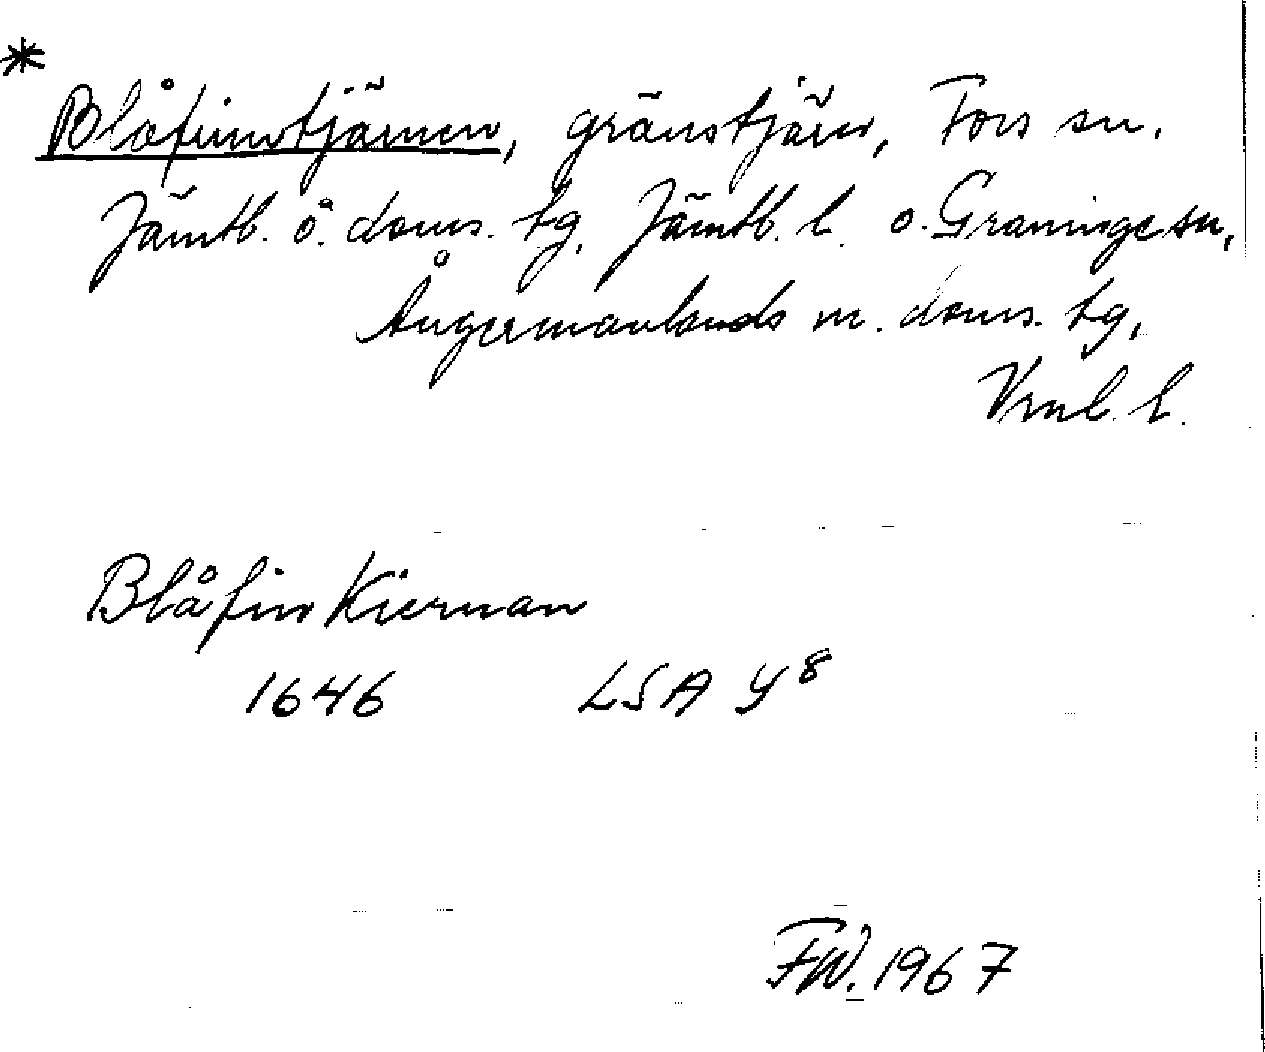 *
Blåfinntjärnen, gränstjärn, Fors sn.
Jämtl. ö. doms. tg, Jämtl. l. o. Graninge sn,
Ångermanlands m. doms. tg,
Vrnl. l.
Blåfin Kiernan
1646 LSA Y8
FW. 1967